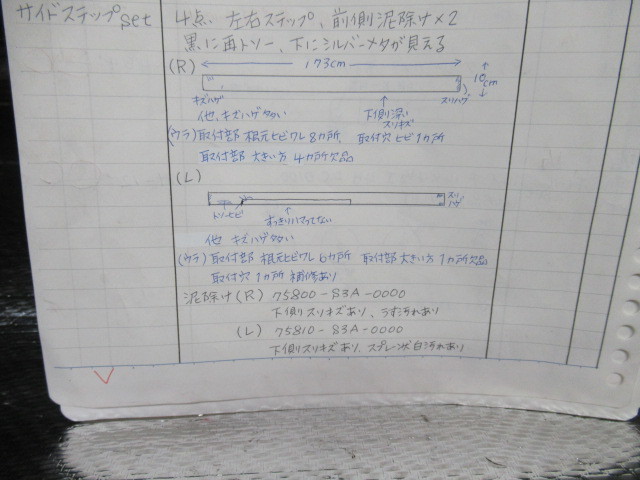 サイドステップset
4点、左右ステップ、前側泥除け×2
黒に再トソー、下にシルバーメタが見える
(R)
173cm
10cm
キズハゲ
スリハゲ
他、キズハゲ多い
下側深い
スリキズ
(ウラ)取付部 根元ヒビワレ8カ所、取付穴 ヒビ1カ所
取付部 大きい方 4カ所欠品
(L)
スリハゲ
トソーヒビ
すっきりハマってない
他 キズハゲ多い
(ウラ)取付部 根元ヒビワレ6カ所 取付部 大きい方 1カ所欠品
取付穴1カ所 補修あり
泥除け(R) 75800-S3A-0000
下側スリキズあり、うすよごれあり
(L) 75810-S3A-0000
下側スリキズあり、スプレンズ白汚れあり